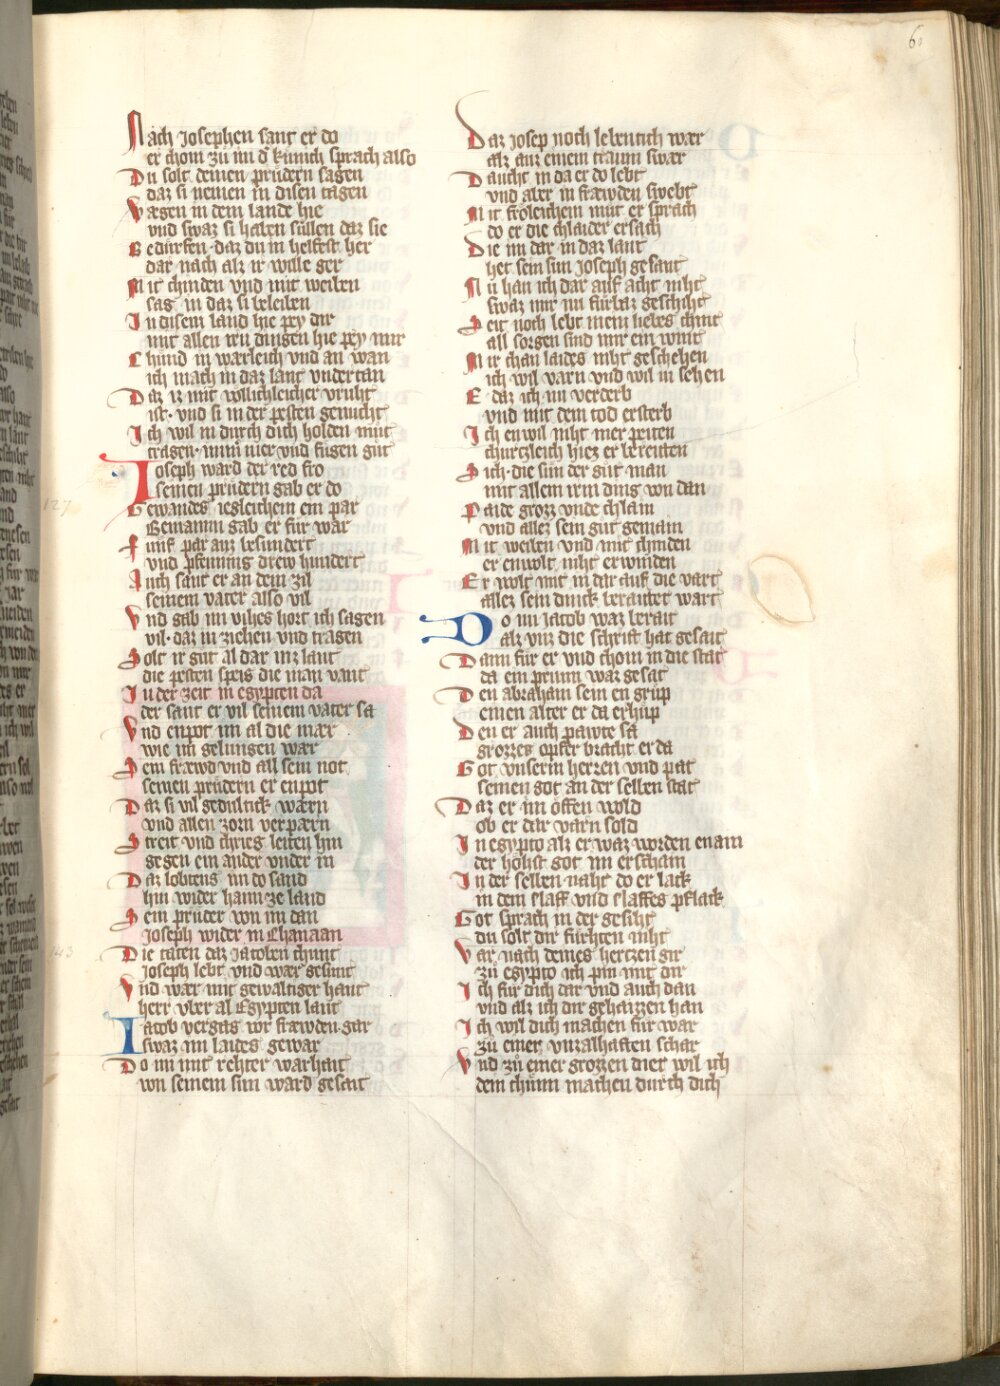 6
Nach Josephen sant er do
er chom zů im d' künich sprach also
Du solt deinen prüdern sagen
daz si nemen in disen tagen
Wægen in dem lande hie
vnd swaz si haben süllen daz sie
Bedürfen · daz du in helfest her
dar nach alz ir wille ger
Mit chinden vnd mit weiben
sag in daz si beleiben
In disem land hie pey dir
mit allen irn dingen hie pey mir
Chünd in warleich vnd an wan
ich mach in daz lant vndertan
Daz iz mit willichleicher vruht
ist · vnd si in der pesten genucht
Ich wil in durch dich holden müt
tragen · nim nier vnd fügen güt
Joseph ward der red fro
seinen prüdern gab er do
Gewandes iegleichem ein par
Beniamin gab er für war
Fünf par auz besundert
vnd pfenning drew hundert
Auch sant er an dem zil
seinem vater also vil
Vnd gab im vihes hort ich sagen
vil · daz in ziehen vnd tragen
Solt ir gut al dar inz lant
die pesten speis die man vant
In der zeit in egypten da
der sant er vil seinem vater sa
Vnd enpot im al die mær
wie im gelungen wær
Sein fræwd vnd all sein not
seinen prüdern er enpot
Daz si vil gedultick wærn
vnd allen zorn verpærn
Streit vnd chrieg leiten hin
gegen ein ander vnder in
Daz lobtens im do sand
hin wider haim ze land
Sein prüder von im dan
Joseph wider in Chanaan
Die taten daz Jacoben chunt
Joseph lebt vnd wær gesunt
Vnd wær mit gewaltiger hant
herr vber al Egypten lant
Jacob vergaz vor fræwden gar
swaz im laides gewar
Do im mit rehter warhait
von seinem sun ward gesait
Daz Josep noch lebentich wær
alz auz einem traum swær
Daucht in da er do lebt
vnd aber in fræwden swebt
Mit frœleichem müt er sprach
do er die chlaider ersach
Die im dar in daz lant
het sein sun Joseph gesant
Nu han ich dar auf acht niht
swaz mir nu fürbaz geschiht
Seit noch lebt mein liebes chint
all sorgen sind mir ein wint
Mir chan laides niht geschehen
ich wil varn vnd wil in sehen
E daz ich nu verderb
vnd mit dem tod ersterb
Ich enwil niht mer peiten
churtzleich hiez er bereiten
Sich · die sün der güt man
mit allem irm ding von dan
Paide grozz vnde chlain
vnd allez sein güt gemain
Mit weiben vnd mit chinden
er enwolt niht erwinden
Er wolt mit in dar auf die vart
allez sein dinck beraitet wart
Do nu Jacob waz berait
alz vns die schrift hat gesait
Dann für er vnd chom in die stat
da ein prunn waz gesat
Den abraham sein en grüp
einen alter er da erhüp
Den er auch pawte sa
grozzes opfer bracht er da
Got vnserm herren vnd pat
seinen got an der selben stat
Daz er im offen wold
ob er dar varn sold
In egypto alz er waz worden enain
der höhst got im erschain
In der selben naht do er lack
in dem slaff vnd slaffes pflack
Got sprach in der gesiht
du solt dir fürhten niht
Var nach deines hertzen gir
zů egypto ich pin mit dir
Ich für dich dar vnd auch dan
vnd alz ich dir gehaizzen han
Ich wil dich machen für war
zů einer vnzalhaften schar
Vnd zů einer grozzen diet wil ich
dein chünn machen durch dich
127
143